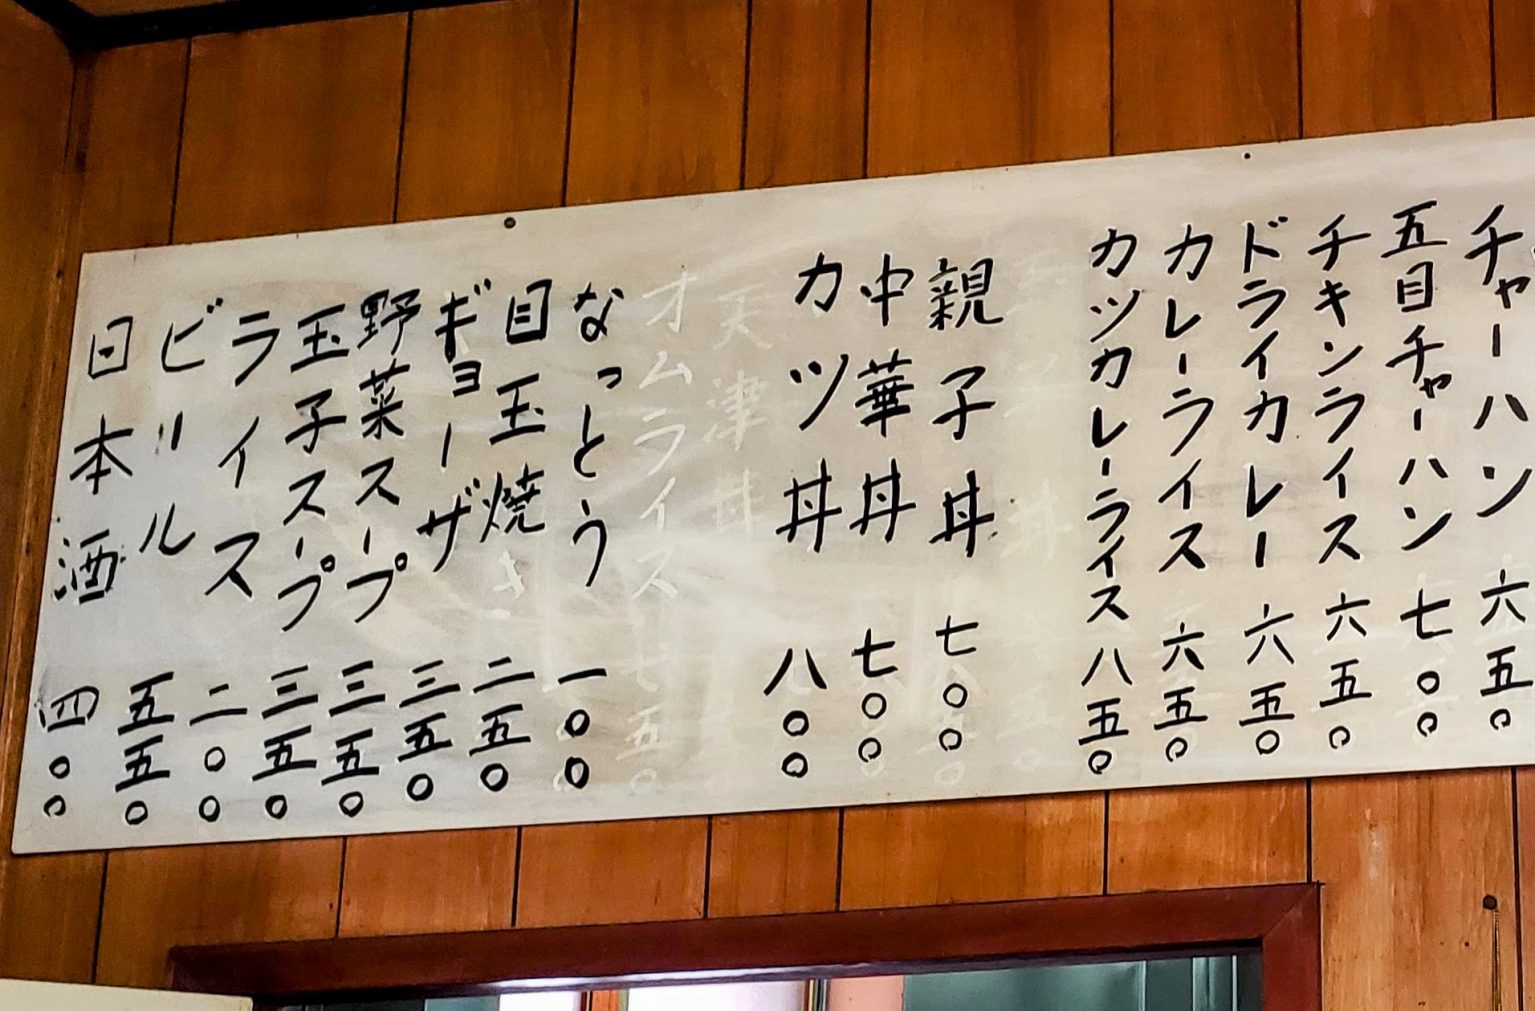 チャーハン 六五〇
五目チャーハン 七〇〇
チキンライス 六五〇
ドライカレー 六五〇
カレーライス 六五〇
カツカレーライス 八五〇
親子丼 七〇〇
中華丼 七〇〇
カツ丼 八〇〇
天津丼
オムライス 七五〇
なっとう 一〇〇
目玉焼き 二五〇
ギョーザ 三五〇
野菜スープ 三五〇
玉子スープ 三五〇
ライス 二〇〇
ビール 五五〇
日本酒 四〇〇